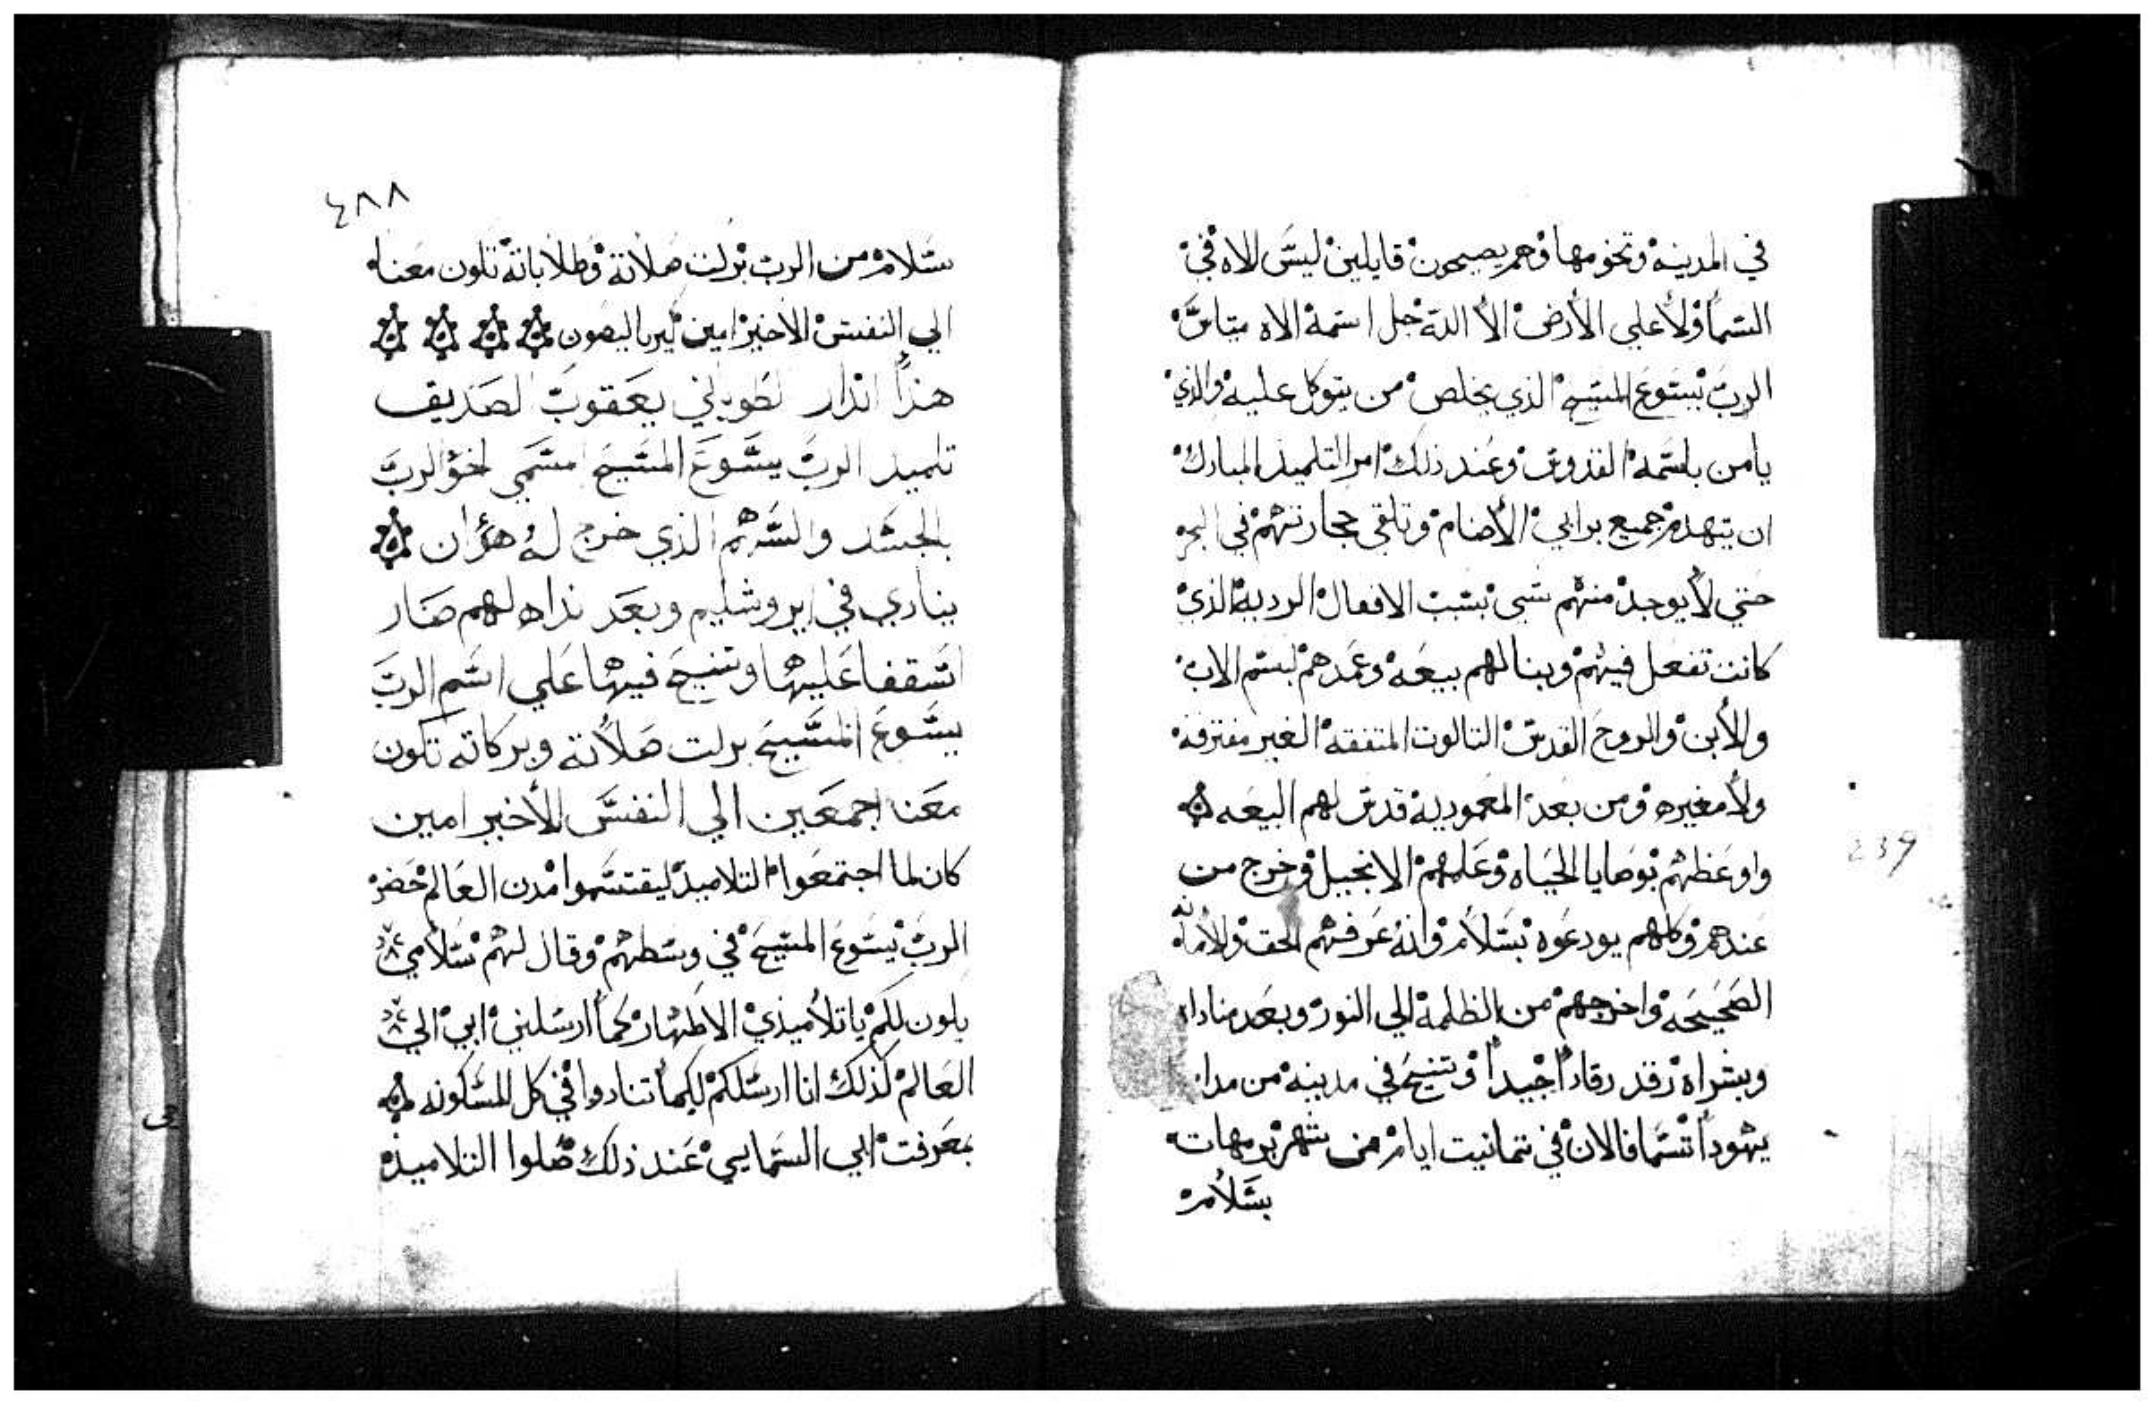 في المدينه وتخومها وهم يصيحون قايلين ليس الاه في
السما ولا علي الارض الا الله جل اسمه الاه متاس
الرب يسوع المسيح الذي يخلص من يتوكل عليه والذي
يامن باسمه القدوس وعند ذلك امر التلميذ المبارك
ان يتهدم جميع برابي الأصنام وتلقي حجارتهم في البحر
حتي لا يوجد منهم شي بسبب الافعال الرديه الذي
كانت تفعل فيهم وبنا لهم بيعه وعمدهم بسم الاب
والابن والروح القدس التالوت المتفقه الغير مفترقه
ولا مغيره ومن بعد المعموديه قدس لهم البيعه
واوعظهم بوصايا الحياه وعلمهم الانجيل وخرج من
عندهم وكلهم يودعوه بسلام وانه عرفهم الحق والأمانه
الصحيحه واخرجهم من الظلمه الي النور وبعد مناداه
وبشراه رقد رقادا جيدا وتنيح في مدينه من مدا
يهودا تسما فالان في تمانيت ايام من شهر برمهات
بسلام
239
٤٨٨
سلام من الرب بركت صلاته وطلاباته تكون معناه
الي النفس الاخير امين كيرياليصون
هذا اندار لطوباني يعقوب الصديق
تلميد الرب يسوع المسيح المسمي اخو الرب
بالجسد والسهم الذي خرج له هؤ ان
ينادي في ايروشليم وبعد نداه لهم صار
اسقفا عليها وتنيح فيها علي اسم الرب
يسوع المسيح بركت صلاته وبركاته تكون
معنا اجمعين الي النفس الأخير امين
كان لما اجتمعوا التلاميذ ليقتسموا مدن العالم حضر
الرب يسوع المسيح في وسطهم وقال لهم سلامي
يكون لكم يا تلاميذي الاطهار كما ارسلني ابي الي
العالم كذلك انا ارسلكم لكيما تنادوا في كل المسكونه
بمعرفت ابي السمايي عند ذلك صلوا التلاميذ